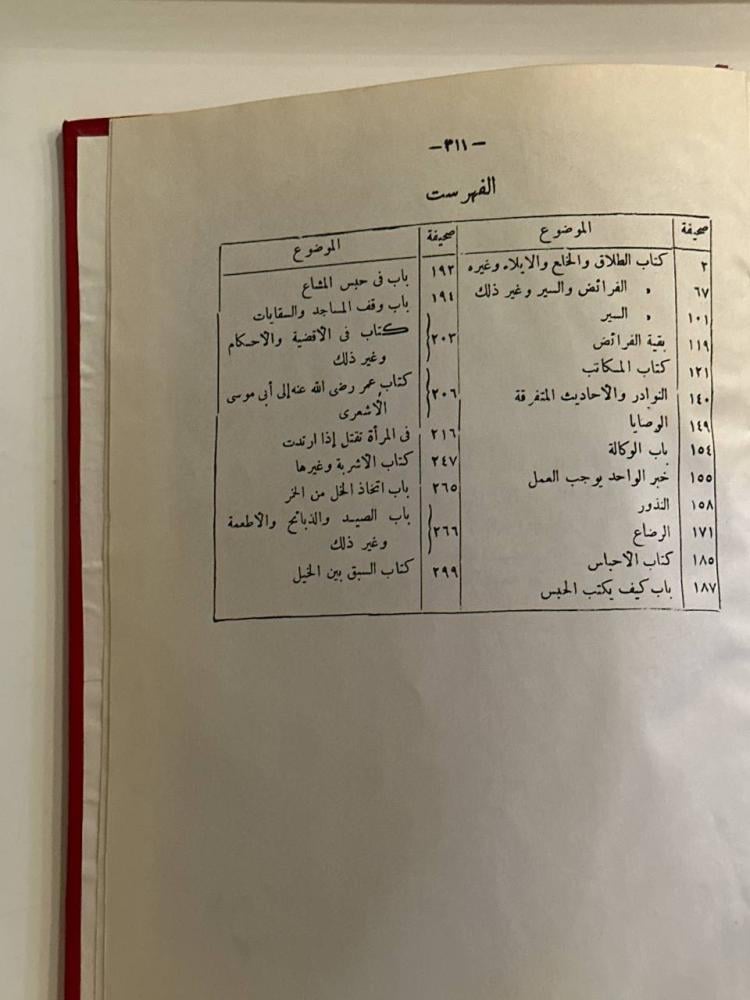 — ٣١١ —
الفهرست
صحيفة الموضوع
٢ كتاب الطلاق والخلع والايلاء وغيره
٦٧ » الفرائض والسير وغير ذلك
١٠١ » السير
١١٩ بقية الفرائض
١٢١ كتاب المكاتب
١٤٠ النوادر والاحاديث المتفرقة
١٤٩ الوصايا
١٥٤ باب الوكالة
١٥٥ خبر الواحد يوجب العمل
١٥٨ النذور
١٧١ الرضاع
١٨٥ كتاب الاحباس
١٨٧ باب كيف يكتب الحبس
صحيفة الموضوع
١٩٢ باب فى حبس المشاع
١٩٤ باب وقف المساجد والسقايات
٢٠٣ كتاب فى الاقضية والاحكام
وغير ذلك
٢٠٦ كتاب عمر رضى الله عنه إلى أبى موسى
الأشعرى
٢١٦ فى المرأة تقتل إذا ارتدت
٢٤٧ كتاب الاشربة وغيرها
٢٦٥ باب اتخاذ الخل من الخمر
٢٦٦ باب الصيد والذبائح والاطعمة
وغير ذلك
٢٩٩ كتاب السبق بين الخيل